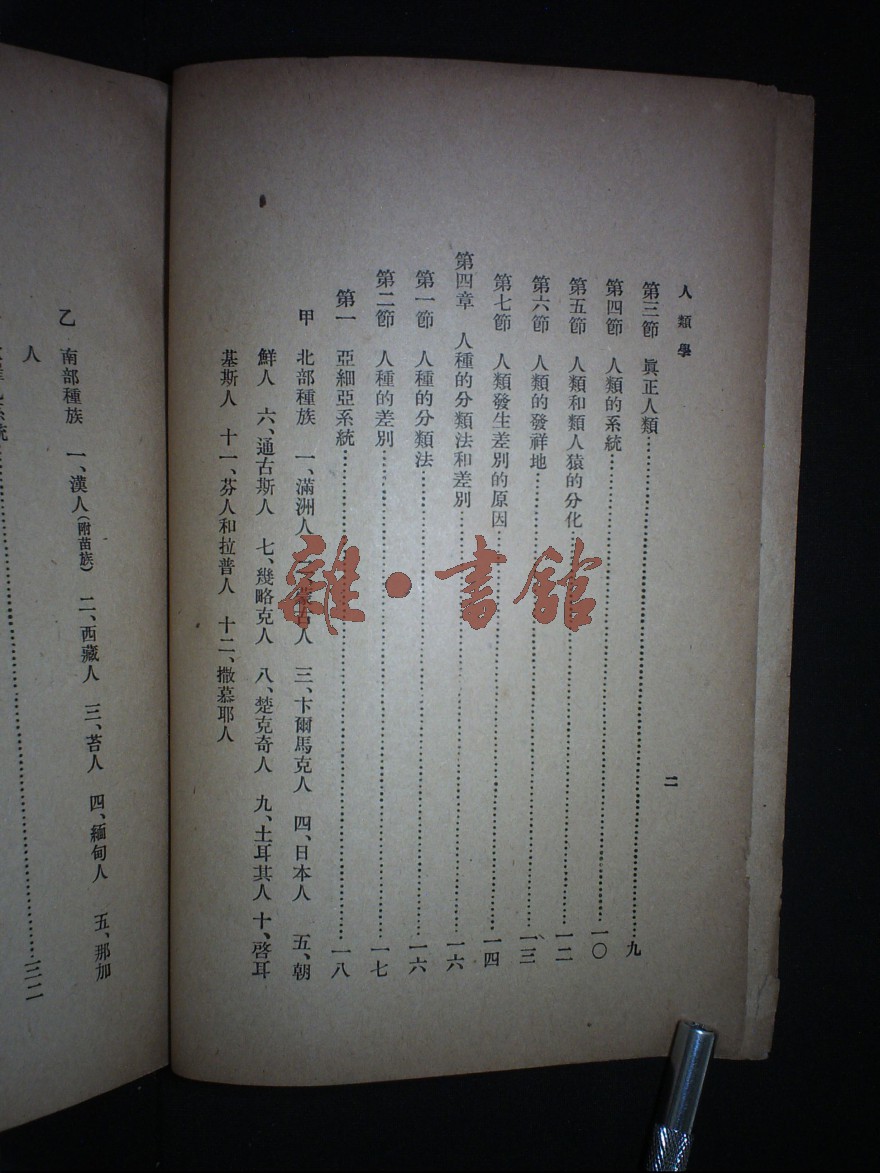 人類學
二
第三節　眞正人類……九
第四節　人類的系統……一〇
第五節　人類和類人猿的分化……一二
第六節　人類的發祥地……一三
第七節　人類發生差別的原因……一四
第四章　人種的分類法和差別……一六
第一節　人種的分類法……一六
第二節　人種的差別……一七
第一　亞細亞系統……一八
甲　北部種族　一、滿洲人　二、蒙古人　三、卞爾馬克人　四、日本人　五、朝
鮮人　六、通古斯人　七、幾略克人　八、楚克奇人　九、土耳其人　十、啓耳
基斯人　十一、芬人和拉普人　十二、撒慕耶人
乙　南部種族　一、漢人（附苗族）　二、西藏人　三、苔人　四、緬甸人　五、那加
人
系統……三二
雜·書館